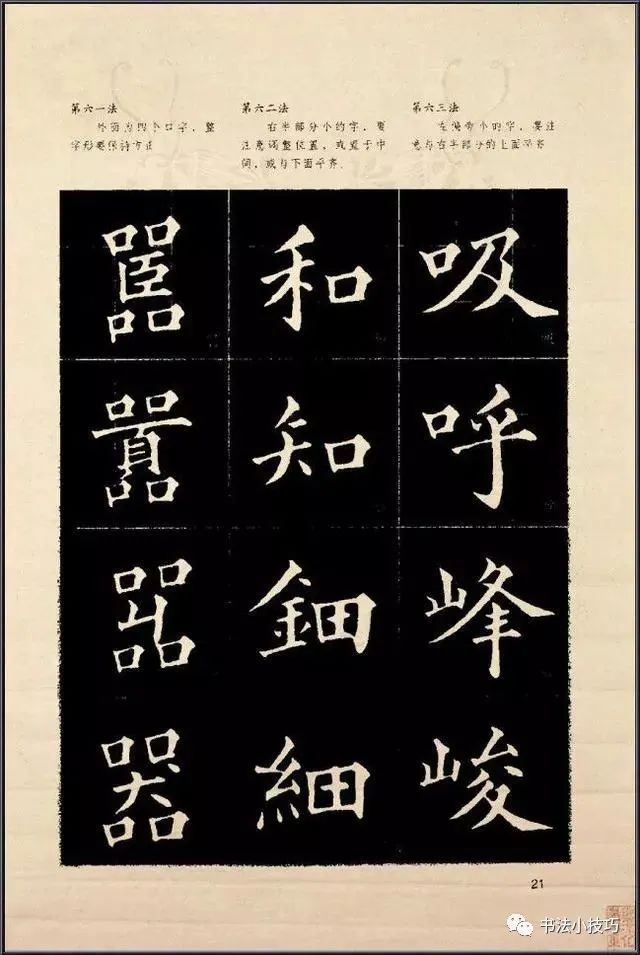 第六一法
外面为四个口字，整
字形要保持方正
第六二法
右半部分小的字，要
注意调整位置，或置于中
间，或与下面平齐
第六三法
左偏旁小的字，要注
意与右半部分的上面平齐
嚚 和 吸
囂 知 呼
嘂 鈿 峰
器 細 峻
21
书法小技巧